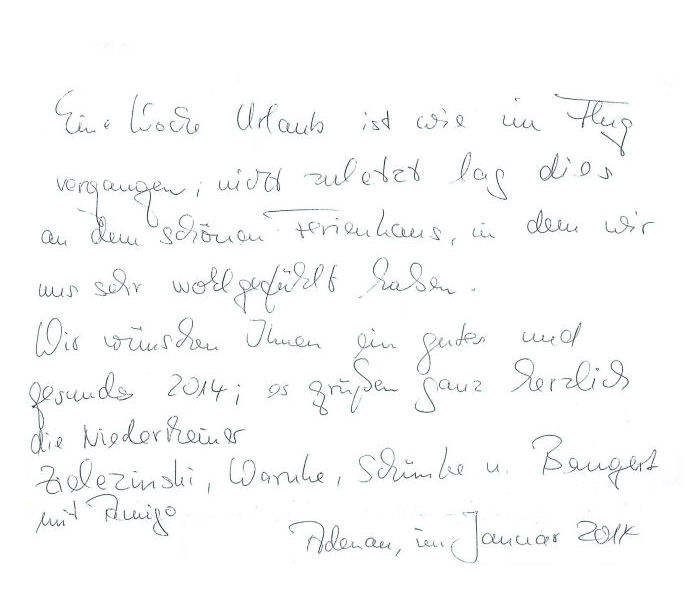 Eine Woche Urlaub ist wie im Flug
vergangen; nicht zuletzt lag dies
an dem schönen Ferienhaus, in dem wir
uns sehr wohlgefühlt haben.
Wir wünschen Ihnen ein gutes und
gesundes 2014; es grüßen ganz herzlich
die Niederrheiner
Zielezinski, Warnke, Schimke u. Bangert
mit Amigo
Adenau, im Januar 2014